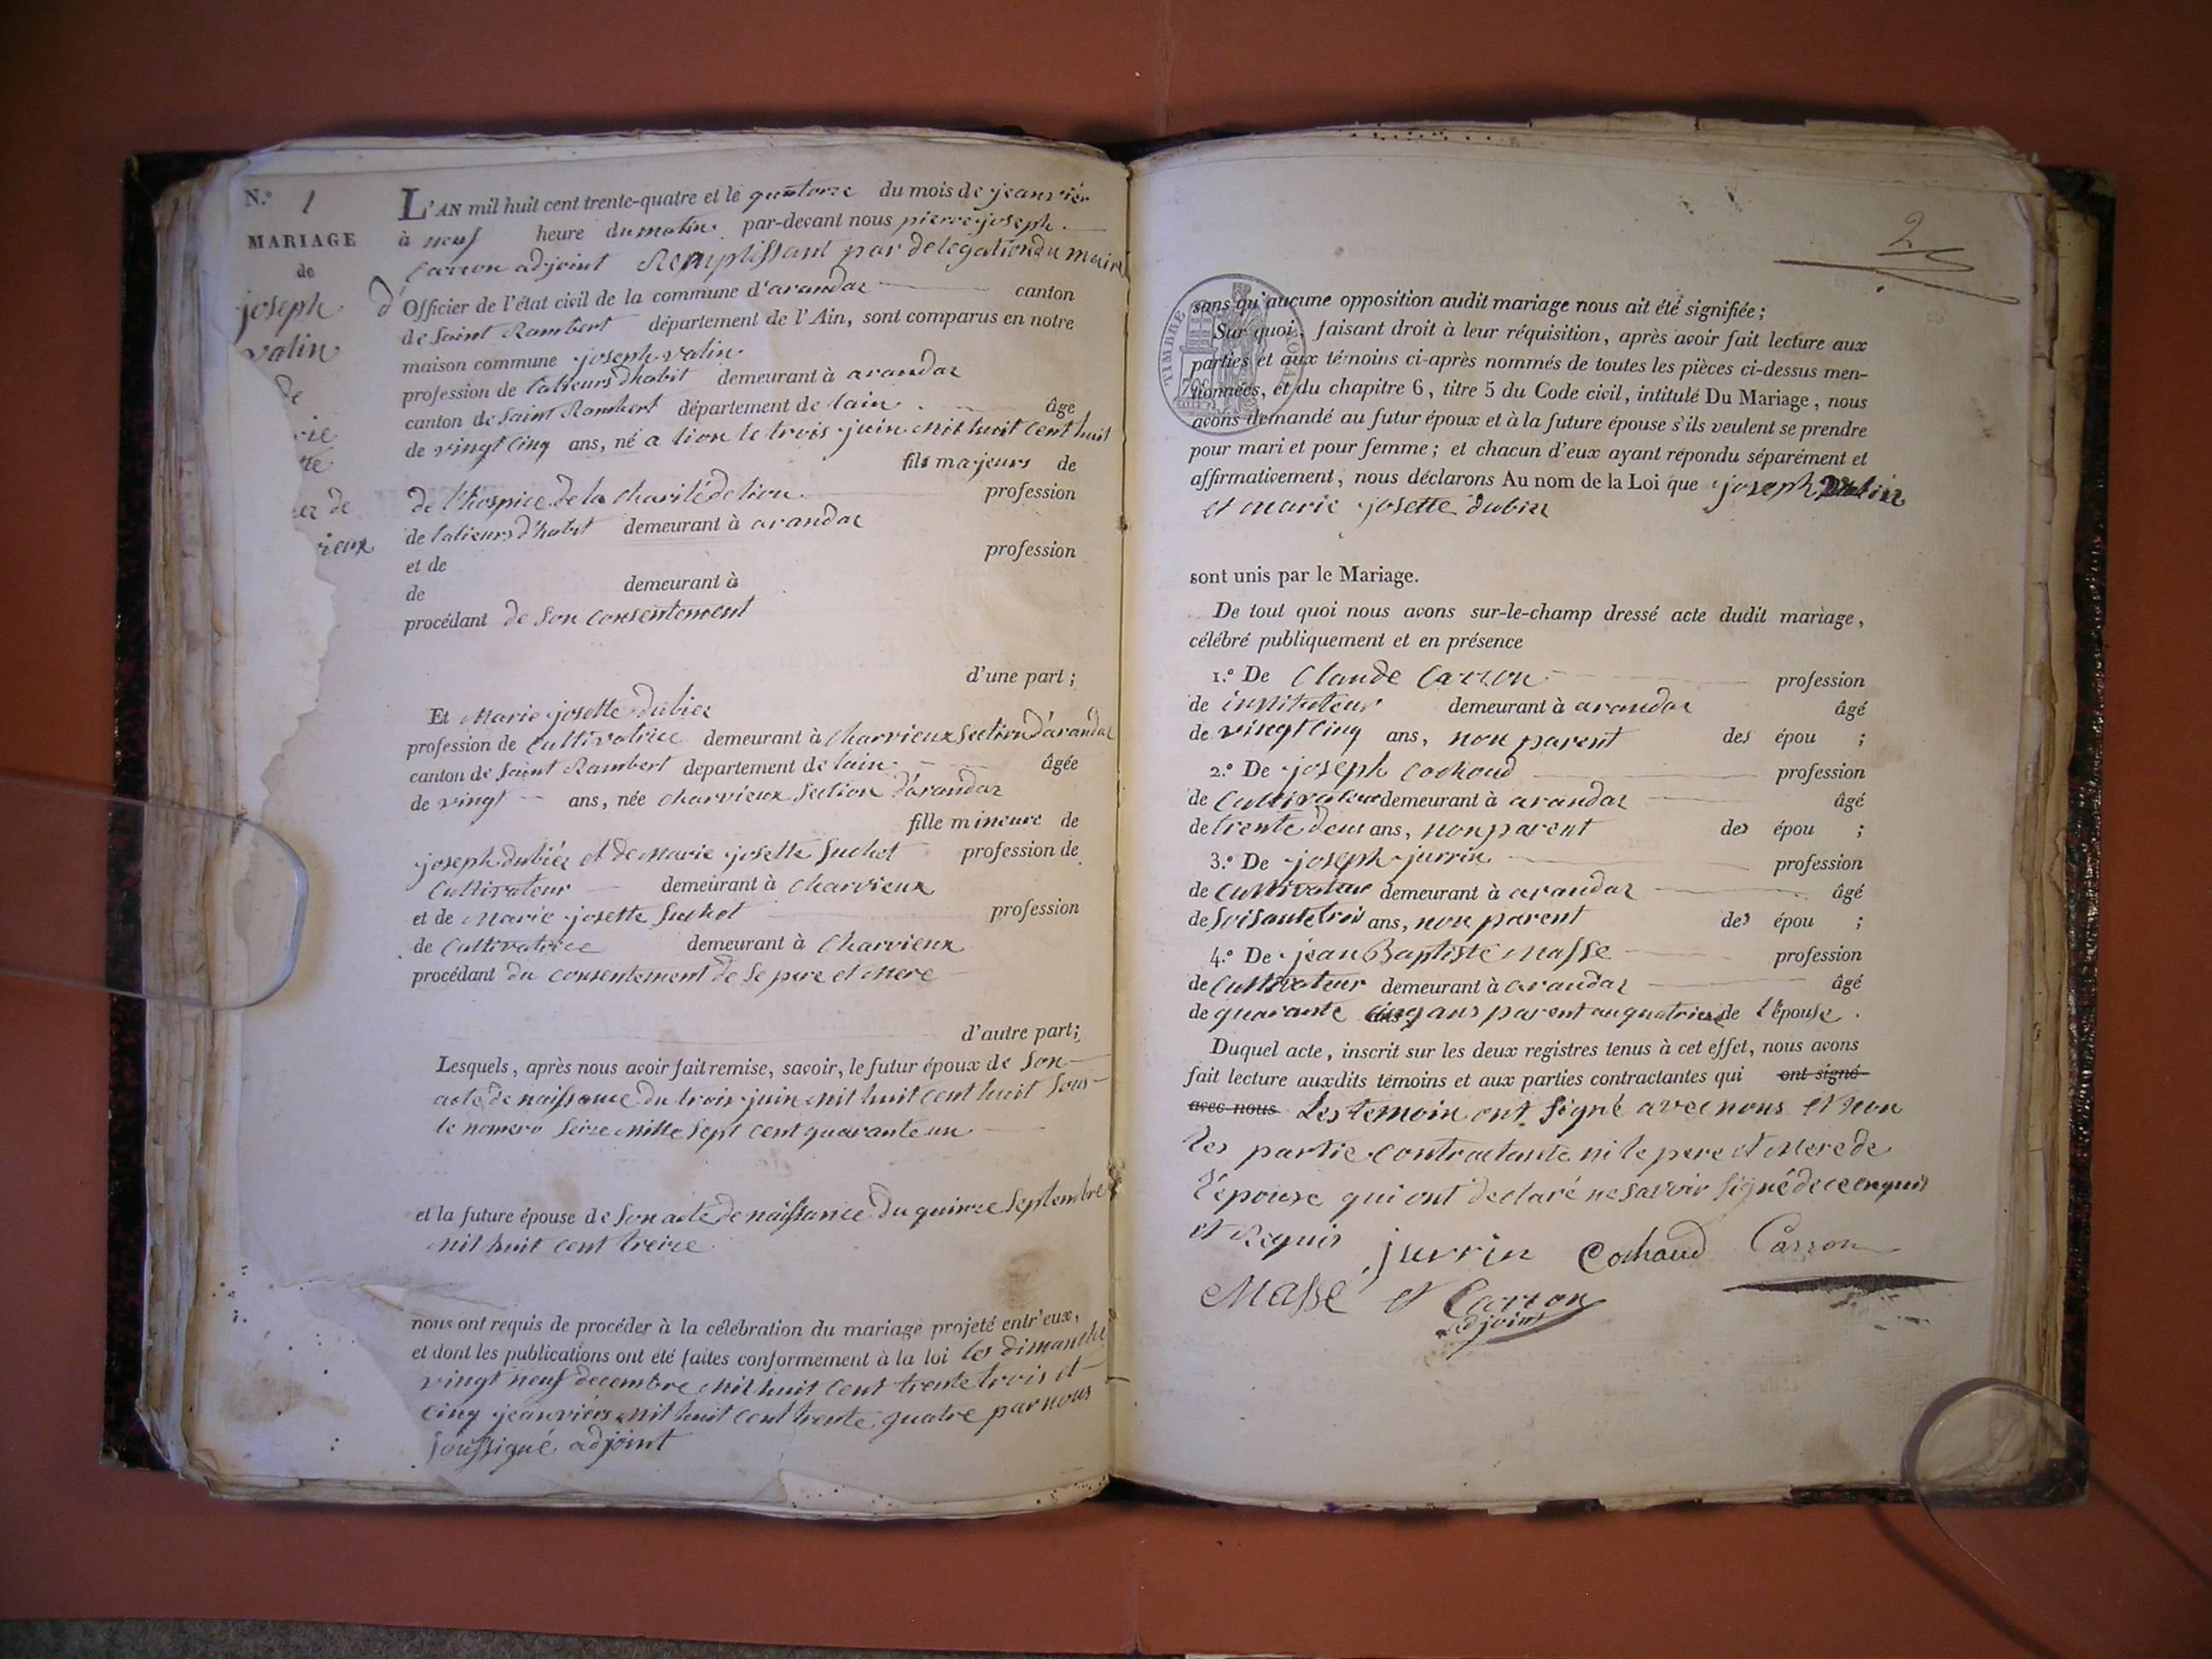 N.º 1
MARIAGE
de
joseph
valin
de
rie
te
er de
rieux
L'AN mil huit cent trente-quatre et le quatorze du mois de jeanvier
à neuf heure du matin par-devant nous pierre joseph
Carron adjoint Remplissant par delegation du maire
d' Officier de l'état civil de la commune d'arandaz canton
de Saint Rambert département de l'Ain, sont comparus en notre
maison commune joseph valin
profession de talieurs dhabit demeurant à arandaz
canton de Saint Rambert département de lain âgé
de vingt cinq ans, né a lion le trois juin mil huit cent huit
fils majeurs de
de l'hospice de la charité de lion profession
de talieurs d'habit demeurant à arandaz
et de profession
de demeurant à
procédant de son consentement
d'une part ;
Et Marie josette dubiez
profession de Cultivatrice demeurant à Charvieux Section d'arandaz
canton de Saint Rambert departement de lain âgée
de vingt ans, née charvieux Section d'arandaz
fille mineure de
joseph dubiez et de Marie josette Suchet profession de
Cultivateur demeurant à Charvieux
et de Marie josette Suchet profession
de Cultivatrice demeurant à Charvieux
procédant du consentement de se pere et Mere
d'autre part ;
Lesquels, après nous avoir fait remise, savoir, le futur époux de Son
acte de naissance du trois juin mil huit cent huit Sous
le nomero Seize mille Sept cent quarante un
et la future épouse de Son acte de naissance du quinze Septembre
mil huit cent treize
nous ont requis de procéder à la célébration du mariage projeté entr'eux,
et dont les publications ont été faites conformement à la loi les dimanche
vingt neuf decembre mil huit cent trente trois et
cinq jeanviers mil huit cent trente quatre par nous
soussigné adjoint
2
TIMBRE ROYAL
70c
sans qu'aucune opposition audit mariage nous ait été signifiée ;
Sur quoi, faisant droit à leur réquisition, après avoir fait lecture aux
parties et aux témoins ci-après nommés de toutes les pièces ci-dessus men-
tionnées, et du chapitre 6, titre 5 du Code civil, intitulé Du Mariage, nous
avons demandé au futur époux et à la future épouse s'ils veulent se prendre
pour mari et pour femme ; et chacun d'eux ayant répondu séparément et
affirmativement, nous déclarons Au nom de la Loi que joseph valin
et marie josette dubiez
sont unis par le Mariage.
De tout quoi nous avons sur-le-champ dressé acte dudit mariage,
célébré publiquement et en présence
1.º De Claude Carron profession
de instituteur demeurant à arandaz âgé
de vingt cinq ans, non parent des épou ;
2.º De joseph Cochaud profession
de Cultivateur demeurant à arandaz âgé
de trente deux ans, non parent des épou ;
3.º De joseph jurrin profession
de Cultivateur demeurant à arandaz âgé
de Soisante trois ans, non parent des épou ;
4.º De jean Baptiste Masse profession
de Cultivateur demeurant à arandaz âgé
de quarante cinq ans parent au quatrieme de l'épouse .
Duquel acte, inscrit sur les deux registres tenus à cet effet, nous avons
fait lecture auxdits témoins et aux parties contractantes qui ont signé
avec nous. Les temoin ont signé avec nous et non
les partie contractante ni le pere et Mere de
l'epouse qui ont declaré ne savoir signé de ce enquis
et Requis jurrin Cochaud Carron
Masse et Carron
adjoint